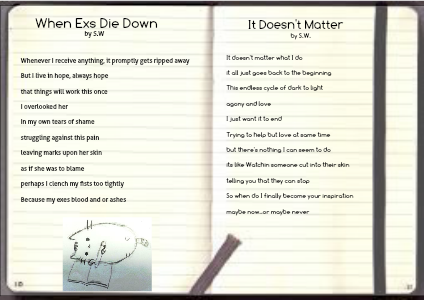 When Exs Die Down
by S.W
Whenever I receive anything, it promptly gets ripped away
But I live in hope, always hope
that things will work this once
I overlooked her
in my own tears of shame
struggling against this pain
leaving marks upon her skin
as if she was to blame
perhaps I clench my fists too tightly
Because my exes blood and or ashes
10
It Doesn't Matter
by S.W.
It doesn't matter what I do
it all just goes back to the beginning
This endless cycle of dark to light
agony and love
I just want it to end
Trying to help but love at same time
but there's nothing I can seem to do
its like Watchin someone cut into their skin
telling you that they can stop
So when do I finally become your inspiration
maybe now...or maybe never